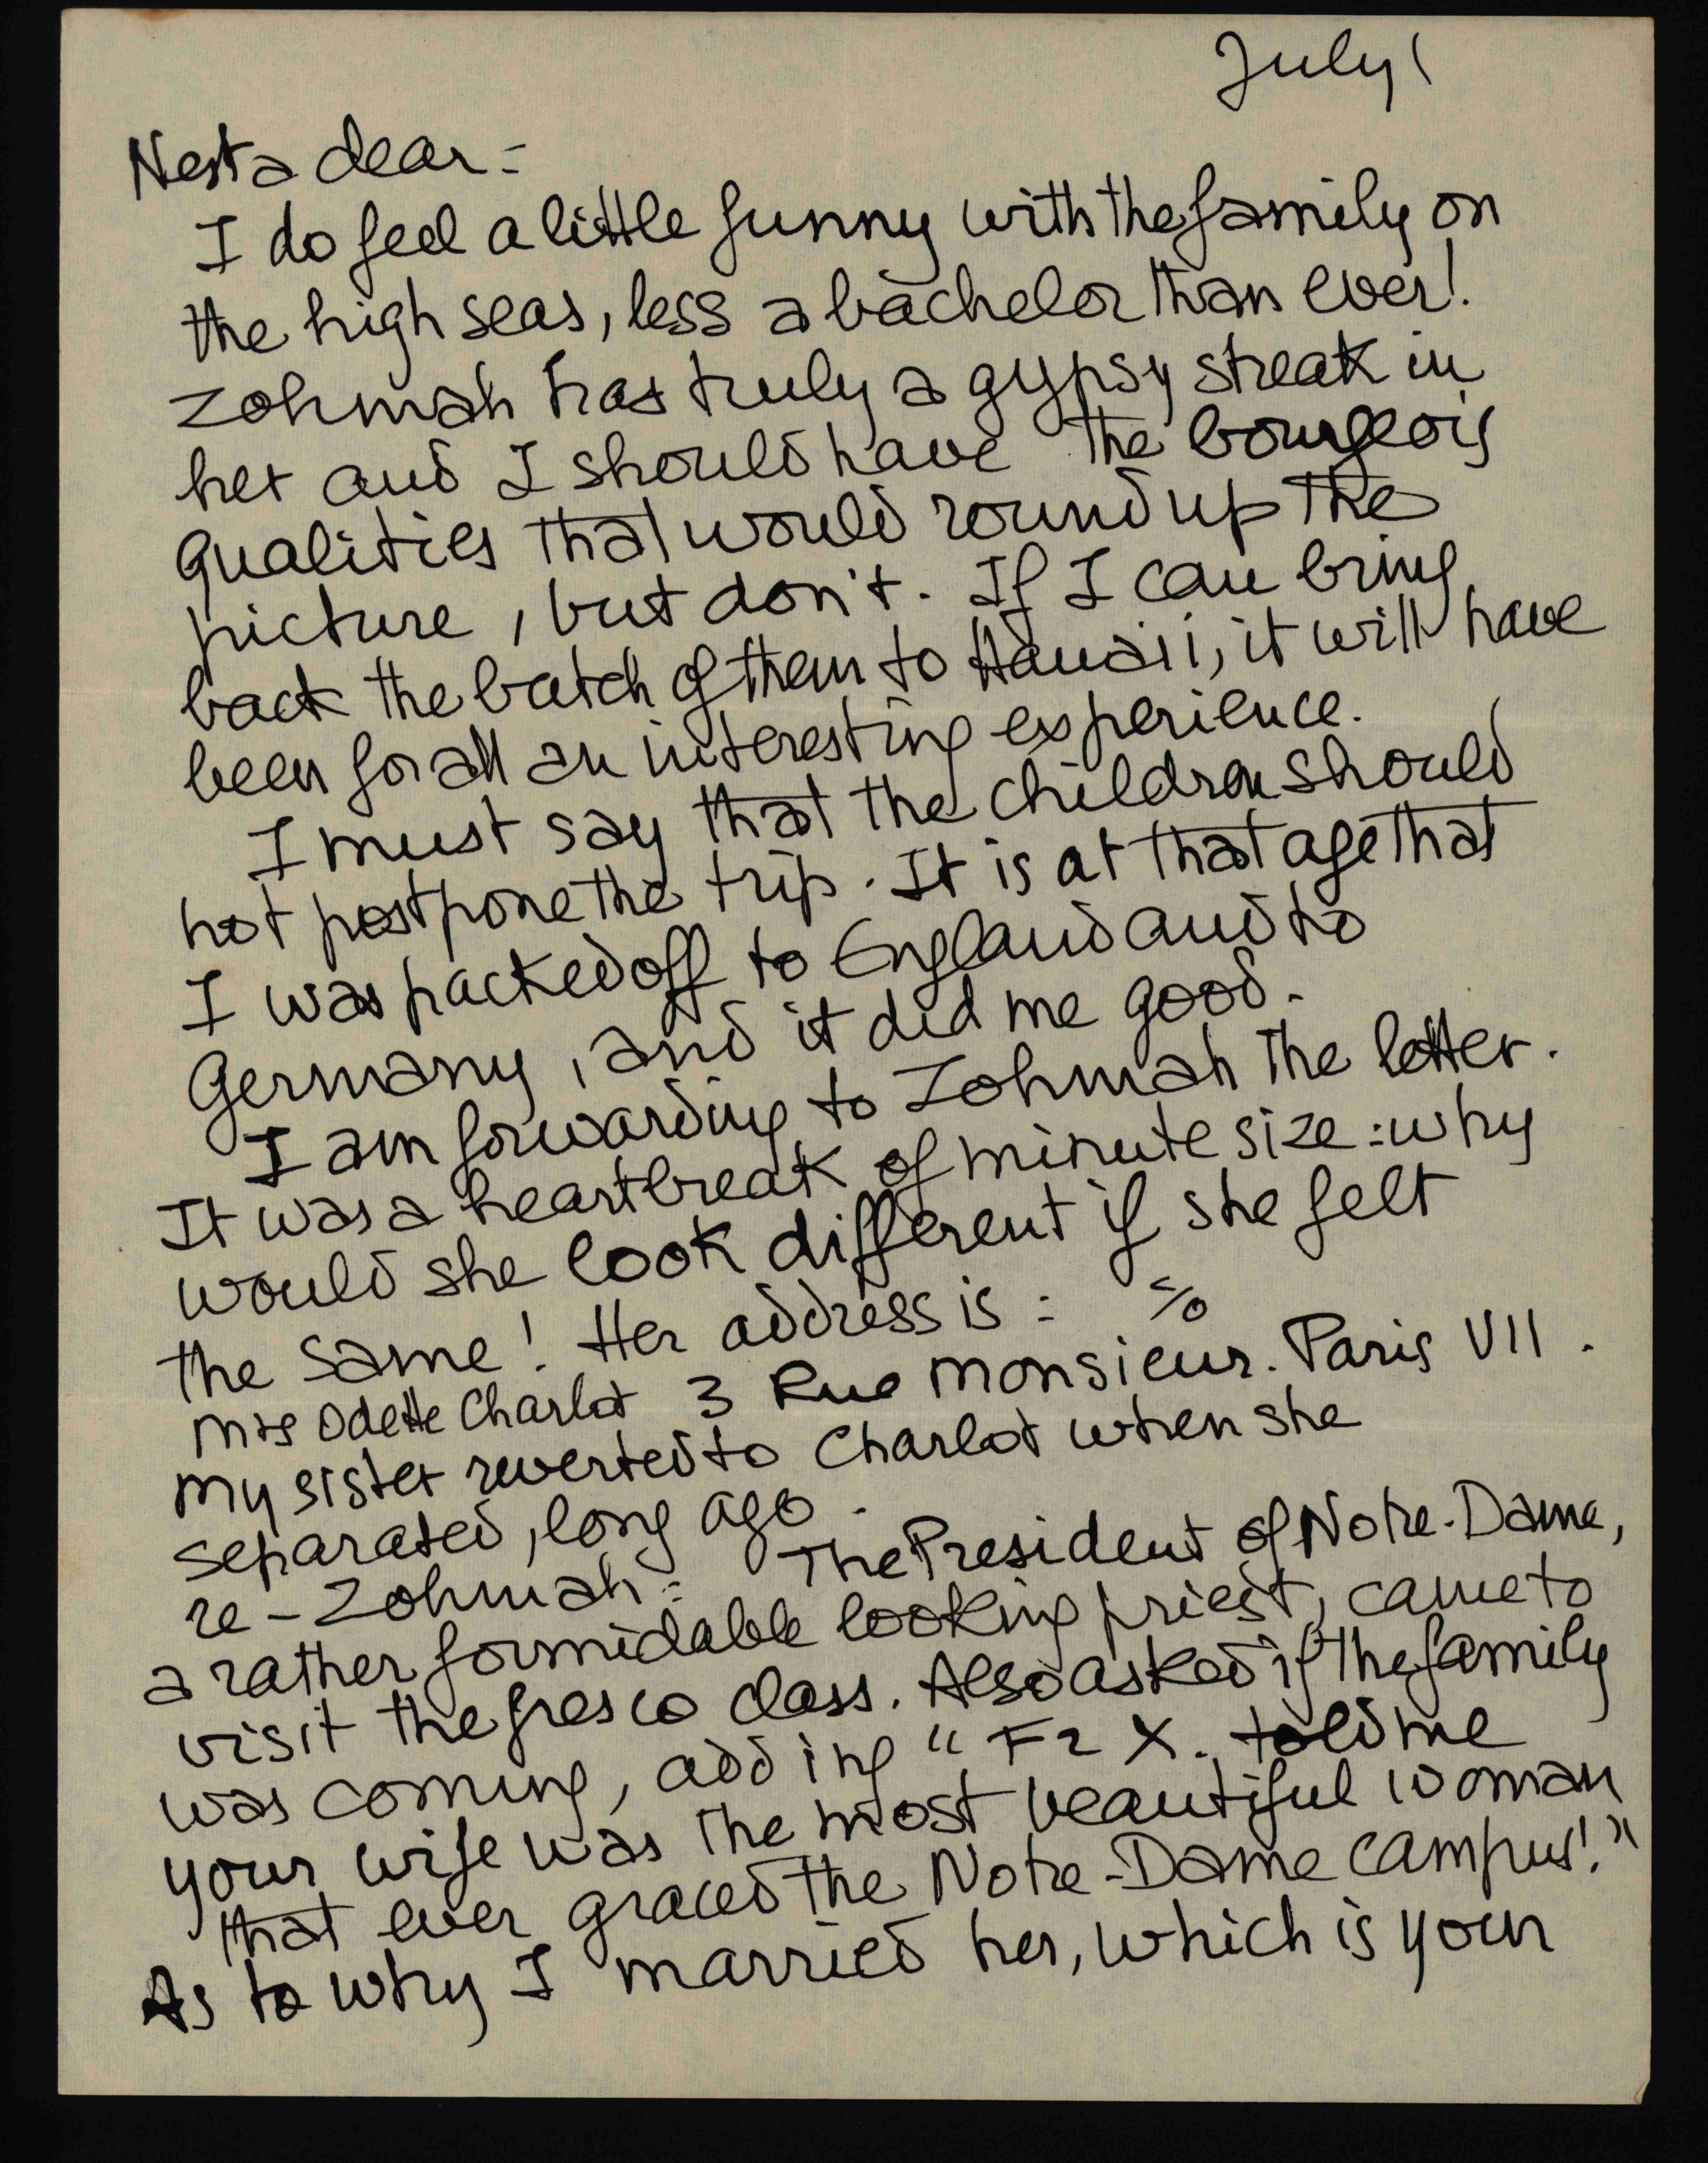 July 1
Nesta dear -
I do feel a little funny with the family on
the high seas, less a bachelor than ever!
Zohmah has truly a gypsy streak in
her and I should have the bourgeois
qualities that would round up the
picture, but don't. If I can bring
back the batch of them to Hawaii, it will have
been for all an interesting experience.
I must say that the children should
not postpone the trip. It is at that age that
I was packed off to England and to
Germany, and it did me good.
I am forwarding to Zohmah the letter.
It was a heartbreak of minute size: why
would she look different if she felt
the same! Her address is: c/o
Mrs Odette Charlot 3 Rue Monsieur. Paris VII.
My sister reverted to Charlot when she
separated, long ago.
re - Zohmah: The President of Notre-Dame,
a rather formidable looking priest, came to
visit the fresco class. Also asked if the family
was coming, adding "Fr X. told me
your wife was the most beautiful woman
that ever graced the Notre-Dame campus!"
As to why I married her, which is your